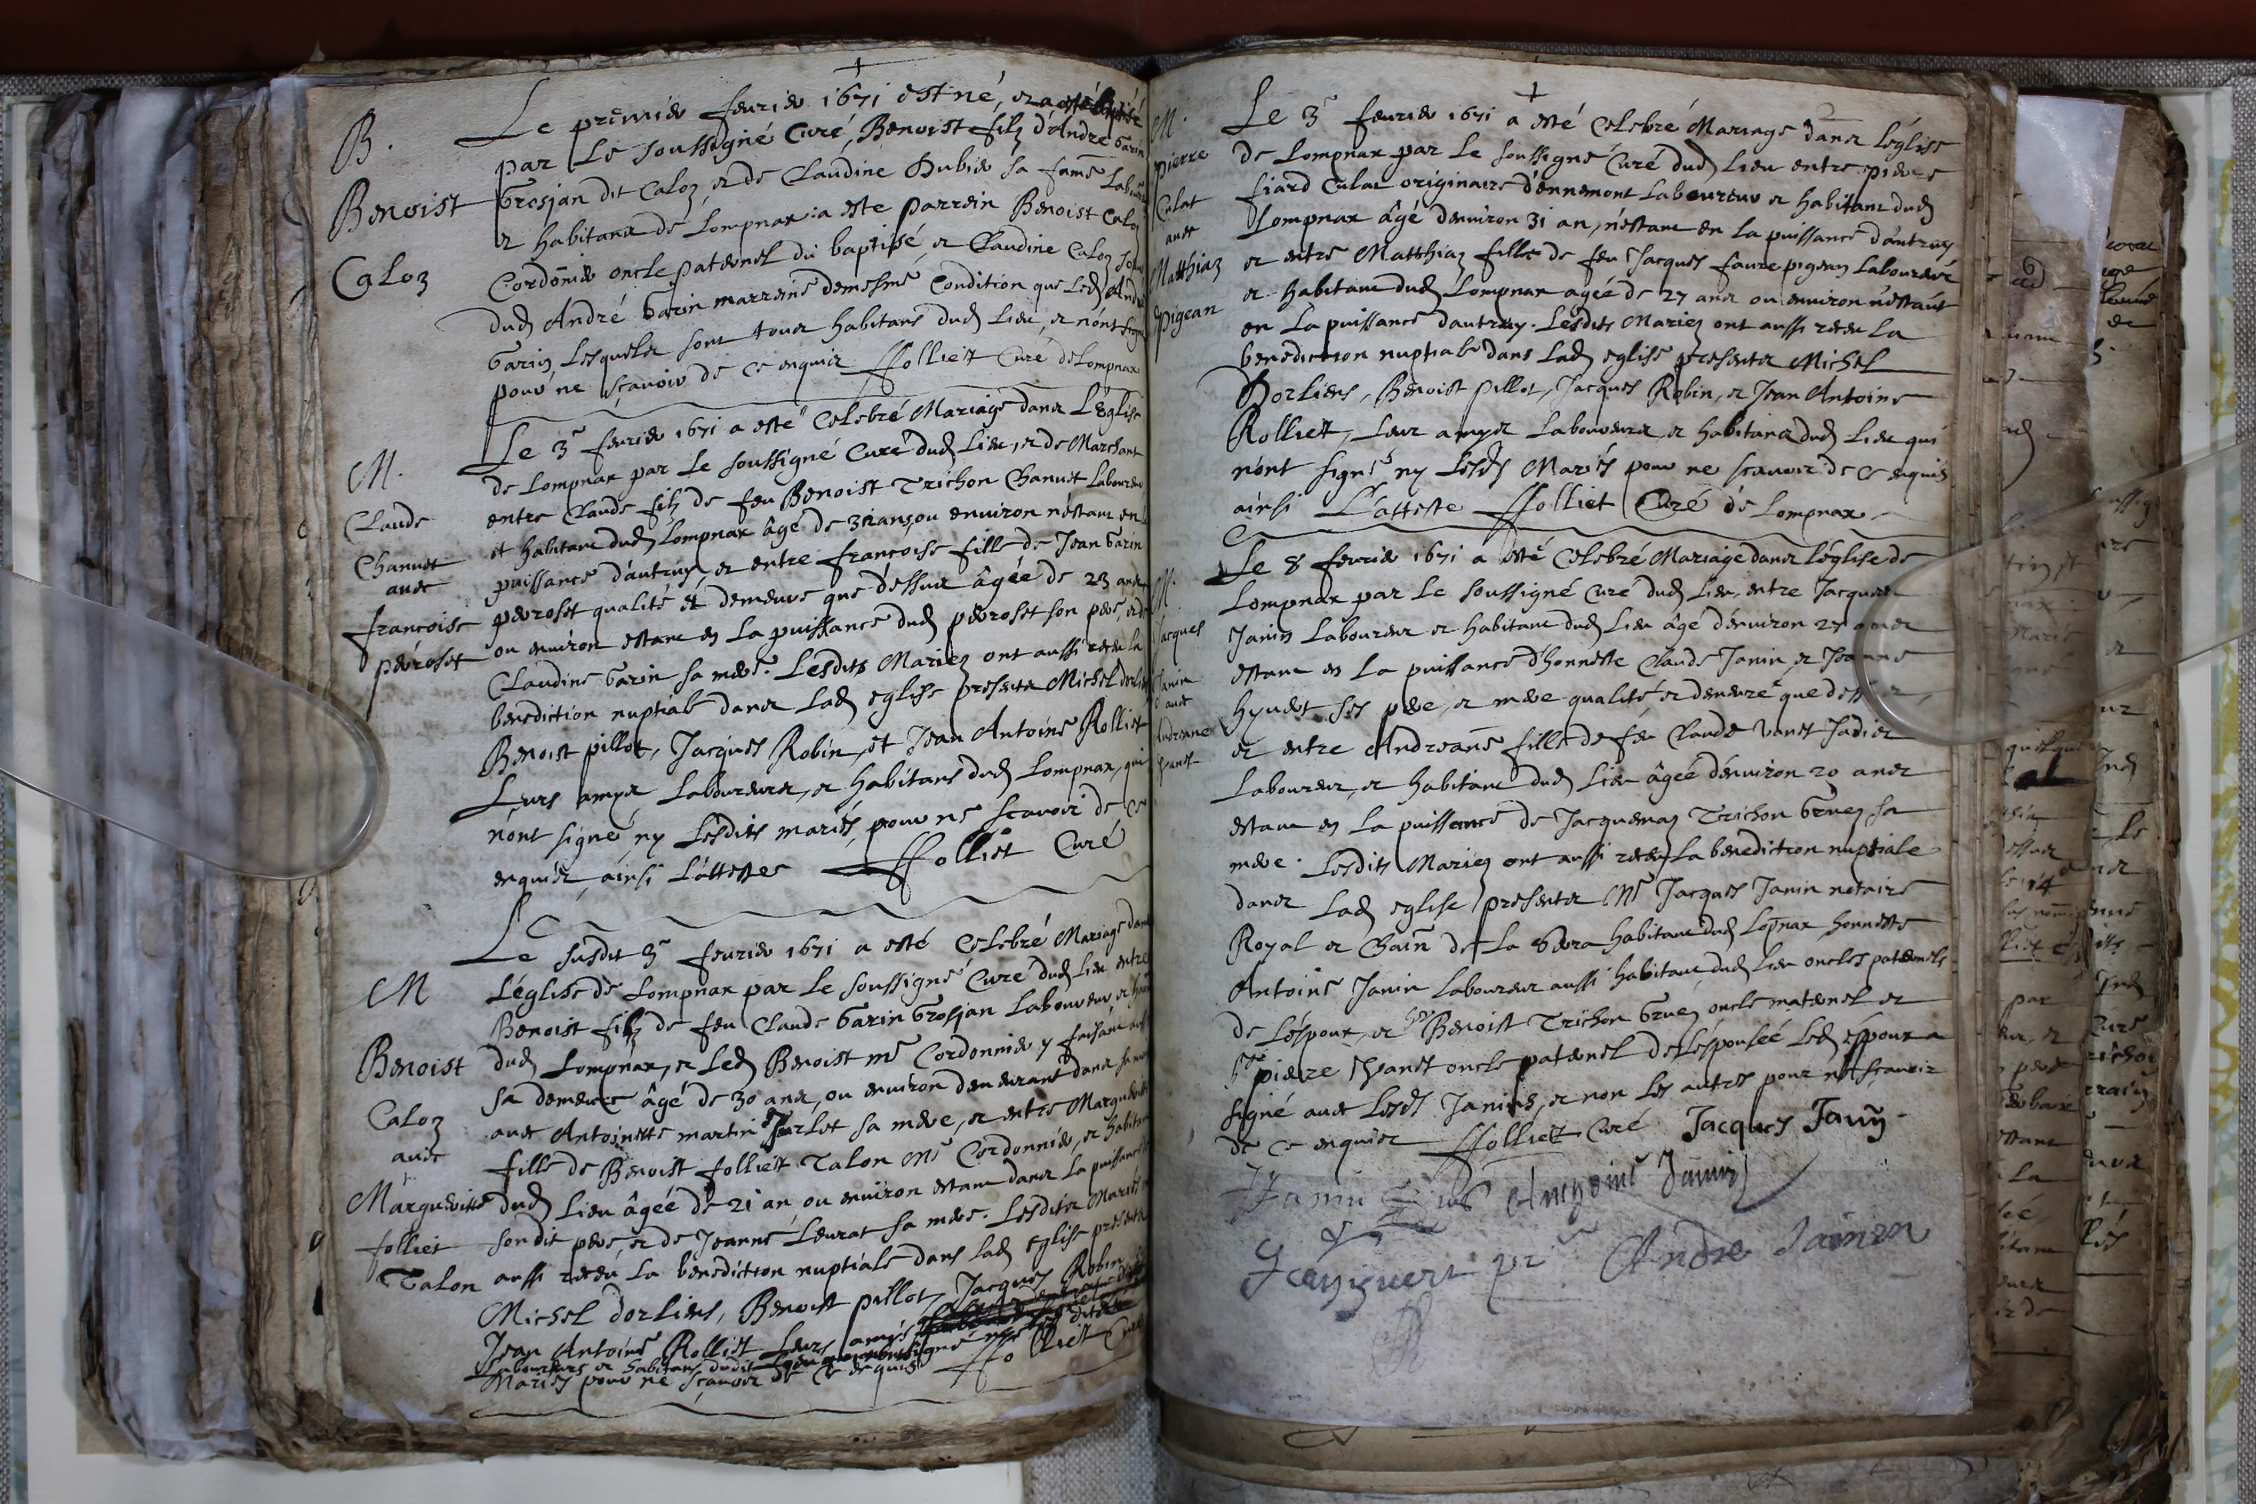 B.
Benoist
Caloz
Le premier feurier 1671 est né, et a esté baptisé
par Le soussigné Curé, Benoist filz d'André Garin
Grosjan dit Caloz, et de Claudine Dubier sa fame Labour
et habitans de Lompnax: a este parrein Benoist Caloz
Cordonnier oncle paternel du baptisé, et Claudine Caloz
dud André Garin marreine demesme Condition que Led André
Garin, Lesquelz sont tous habitans dud Lieu, et n'ont signé
pour ne sçauoir de ce enquis ffolliet Curé de Lompnax
M.
Claude
Chanuet
auec
françoise
peroset
Le 3e feurier 1671 a esté Celebré Mariage dans L'Eglise
de Lompnax par Le soussigné Curé dud Lieu, et de Marchant
entre Claude filz de feu Benoist Trichon Chanuet Laboureur
et habitant dud Lompnax âgé de 31 ans, ou enuiron n'estant en
puissance d'autruy, et entre françoise fille de Jean Garin
peroset qualité et demeure que dessus âgée de 23 ans
ou enuiron estant en La puissance dud peroset son pere, et de
Claudine Garin sa mere. Lesdits Mariez ont aussi receu la
benediction nuptiale dans Lad eglise presents Michel dorliens
Benoist pillot, Jacques Robin, et Jean Antoine Rolliet
Leurs amys Laboureurs, et habitans dud Lompnax, qui
n'ont signé ny Lesdits mariés, pour ne scauoir de ce
enquis, ainsi L'atteste ffolliet Curé
M
Benoist
Caloz
auec
Margueritte
folliet
Talon
Le susdit 3e feurier 1671 a esté Celebré Mariage dans
L'église de Lompnax par Le soussigné Curé dud Lieu entre
Benoist filz de feu Claude Garin Grosjan Laboureur et
dud Lompnax, et Led Benoist me Cordonnier y faisant aussi
sa demeure âgé de 30 ans, ou enuiron demeurant dans sa
auec Antoinette martin Jarlot sa mere, et entre Marguerite
fille de Benoist folliet Talon Me Cordonnier, et habitant
dud Lieu âgée de 21 an ou enuiron estant dans La puissance
sondit pere, et de Jeanne Leurat sa mere. Lesdits Mariés
aussi receu La benediction nuptiale dans Lad eglise presents
Michel dorliens, Benoist pillot, Jacques Robin
Jean Antoine Rolliet Leurs amys
Laboureurs et habitans dudit Lieu qui n'ont signé ny Lesdits
Mariés pour ne sçauoir de ce enquis ffolliet Curé
M.
Pierre
Culat
auec
Matthiaz
Pigean
Le 3e feurier 1671 a esté Celebré Mariage dans L'église
de Lompnax par Le soussigné Curé dud Lieu entre Pierre
fiard Culat originaire d'ennemont Laboureur et habitant dud
Lompnax âgé d'enuiron 31 an, n'estant en la puissance d'autruy
et entre Matthiaz fille de feu Jacques faure pigean Laboureur
et habitant dud Lompnax agée de 27 ans ou enuiron n'estant
en La puissance d'autruy. Lesdits Mariez ont aussi receu La
benediction nuptiale dans Lad eglise presents Michel
Dorliens, Benoist pillot, Jacques Robin, et Jean Antoine
Rolliet, Leur amys Laboureurs et habitans dud Lieu qui
n'ont signés ny Lesds Mariés pour ne scauoir de ce enquis
ainsi L'atteste ffolliet Curé de Lompnax
M.
Jacques
Janin
auec
Andreane
Vanet
Le 8 feurier 1671 a esté Celebré Mariage dans L'église de
Lompnax par Le soussigné Curé dud Lieu, entre Jacques
Janin Laboureur et habitant dud Lieu âgé d'enuiron 27 ans
estant en La puissance d'honneste Claude Janin et Jeanne
Hyuert ses pere, et mere qualité et demeure que dessus,
et entre Andreane fille de feu Claude Vanet Jadis
Laboureur, et habitant dud Lieu âgée d'enuiron 20 ans
estant en La puissance de Jacquemaz Trichon Gruez sa
mere. Lesdits Mariez ont aussi receu La benediction nuptiale
dans Lad eglise presents Me Jacques Janin notaire
Royal et Chatn de La habitant dud Lopnax, honneste
Antoine Janin Laboureur aussi habitant dud Lieu oncles paternels
de L'espoux, et Benoist Trichon Gruez oncle maternel et
pierre Vanet oncle paternel de L'espousée Led espoux a
signé auec Lesds Janins, et non Les autres pour ne sçauoir
de ce enquis ffolliet Curé Jacques Janin
Janin Anthoine Janin
André Janin